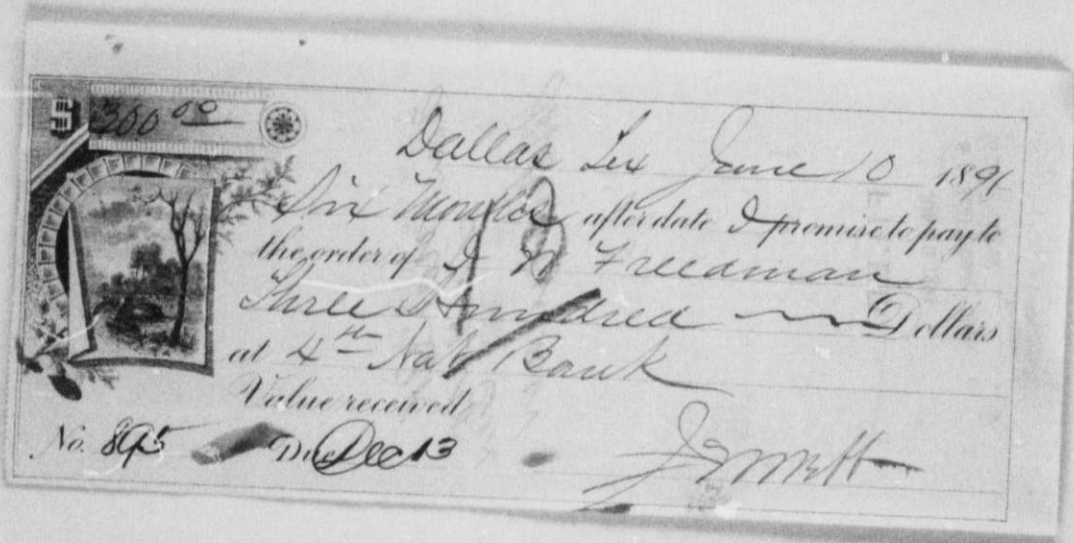 $ 300 00
Dallas Tex June 10 1891
Six Months after date I promise to pay to
the order of I N Freedman
Three Hundred Dollars
at 4th Nat Bank
Value received
No. 895 Due Dec 13